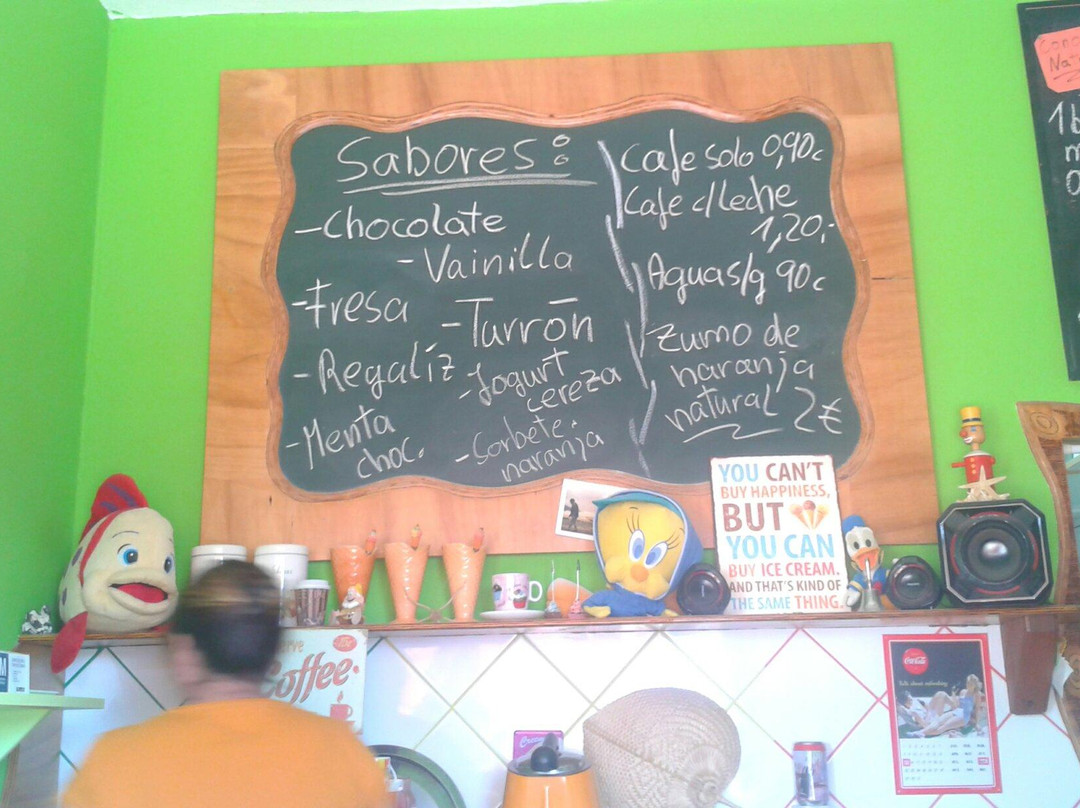 Sabores:
-Chocolate
-Vainilla
-Fresa
-Turrón
-Regalíz
-Jogurt
cereza
-Menta
choc.
-Sorbete
naranja
Cafe solo 0,90c
Cafe c/Leche
1,20,-
Aguas/g 90c
Zumo de
naranja
natural 2€
YOU CAN'T
BUY HAPPINESS,
BUT
YOU CAN
BUY ICE CREAM.
AND THAT'S KIND OF
THE SAME THING.
Coffee
Coca-Cola